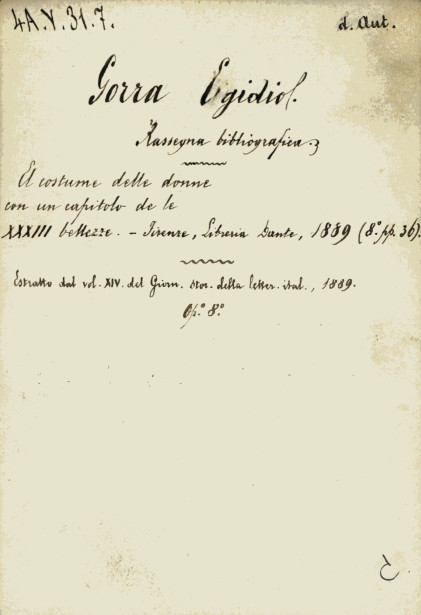 4A.V.31.7.
d. Aut.
Gorra Egidio.
Rassegna bibliografica.
El costume delle donne
con un capitolo de le
XXXIII bellezze. - Firenze, Libreria Dante, 1889 (8.º pp. 36).
Estratto dal vol. XIV. del Giorn. stor. della letter. ital., 1889.
Op.º 8.º